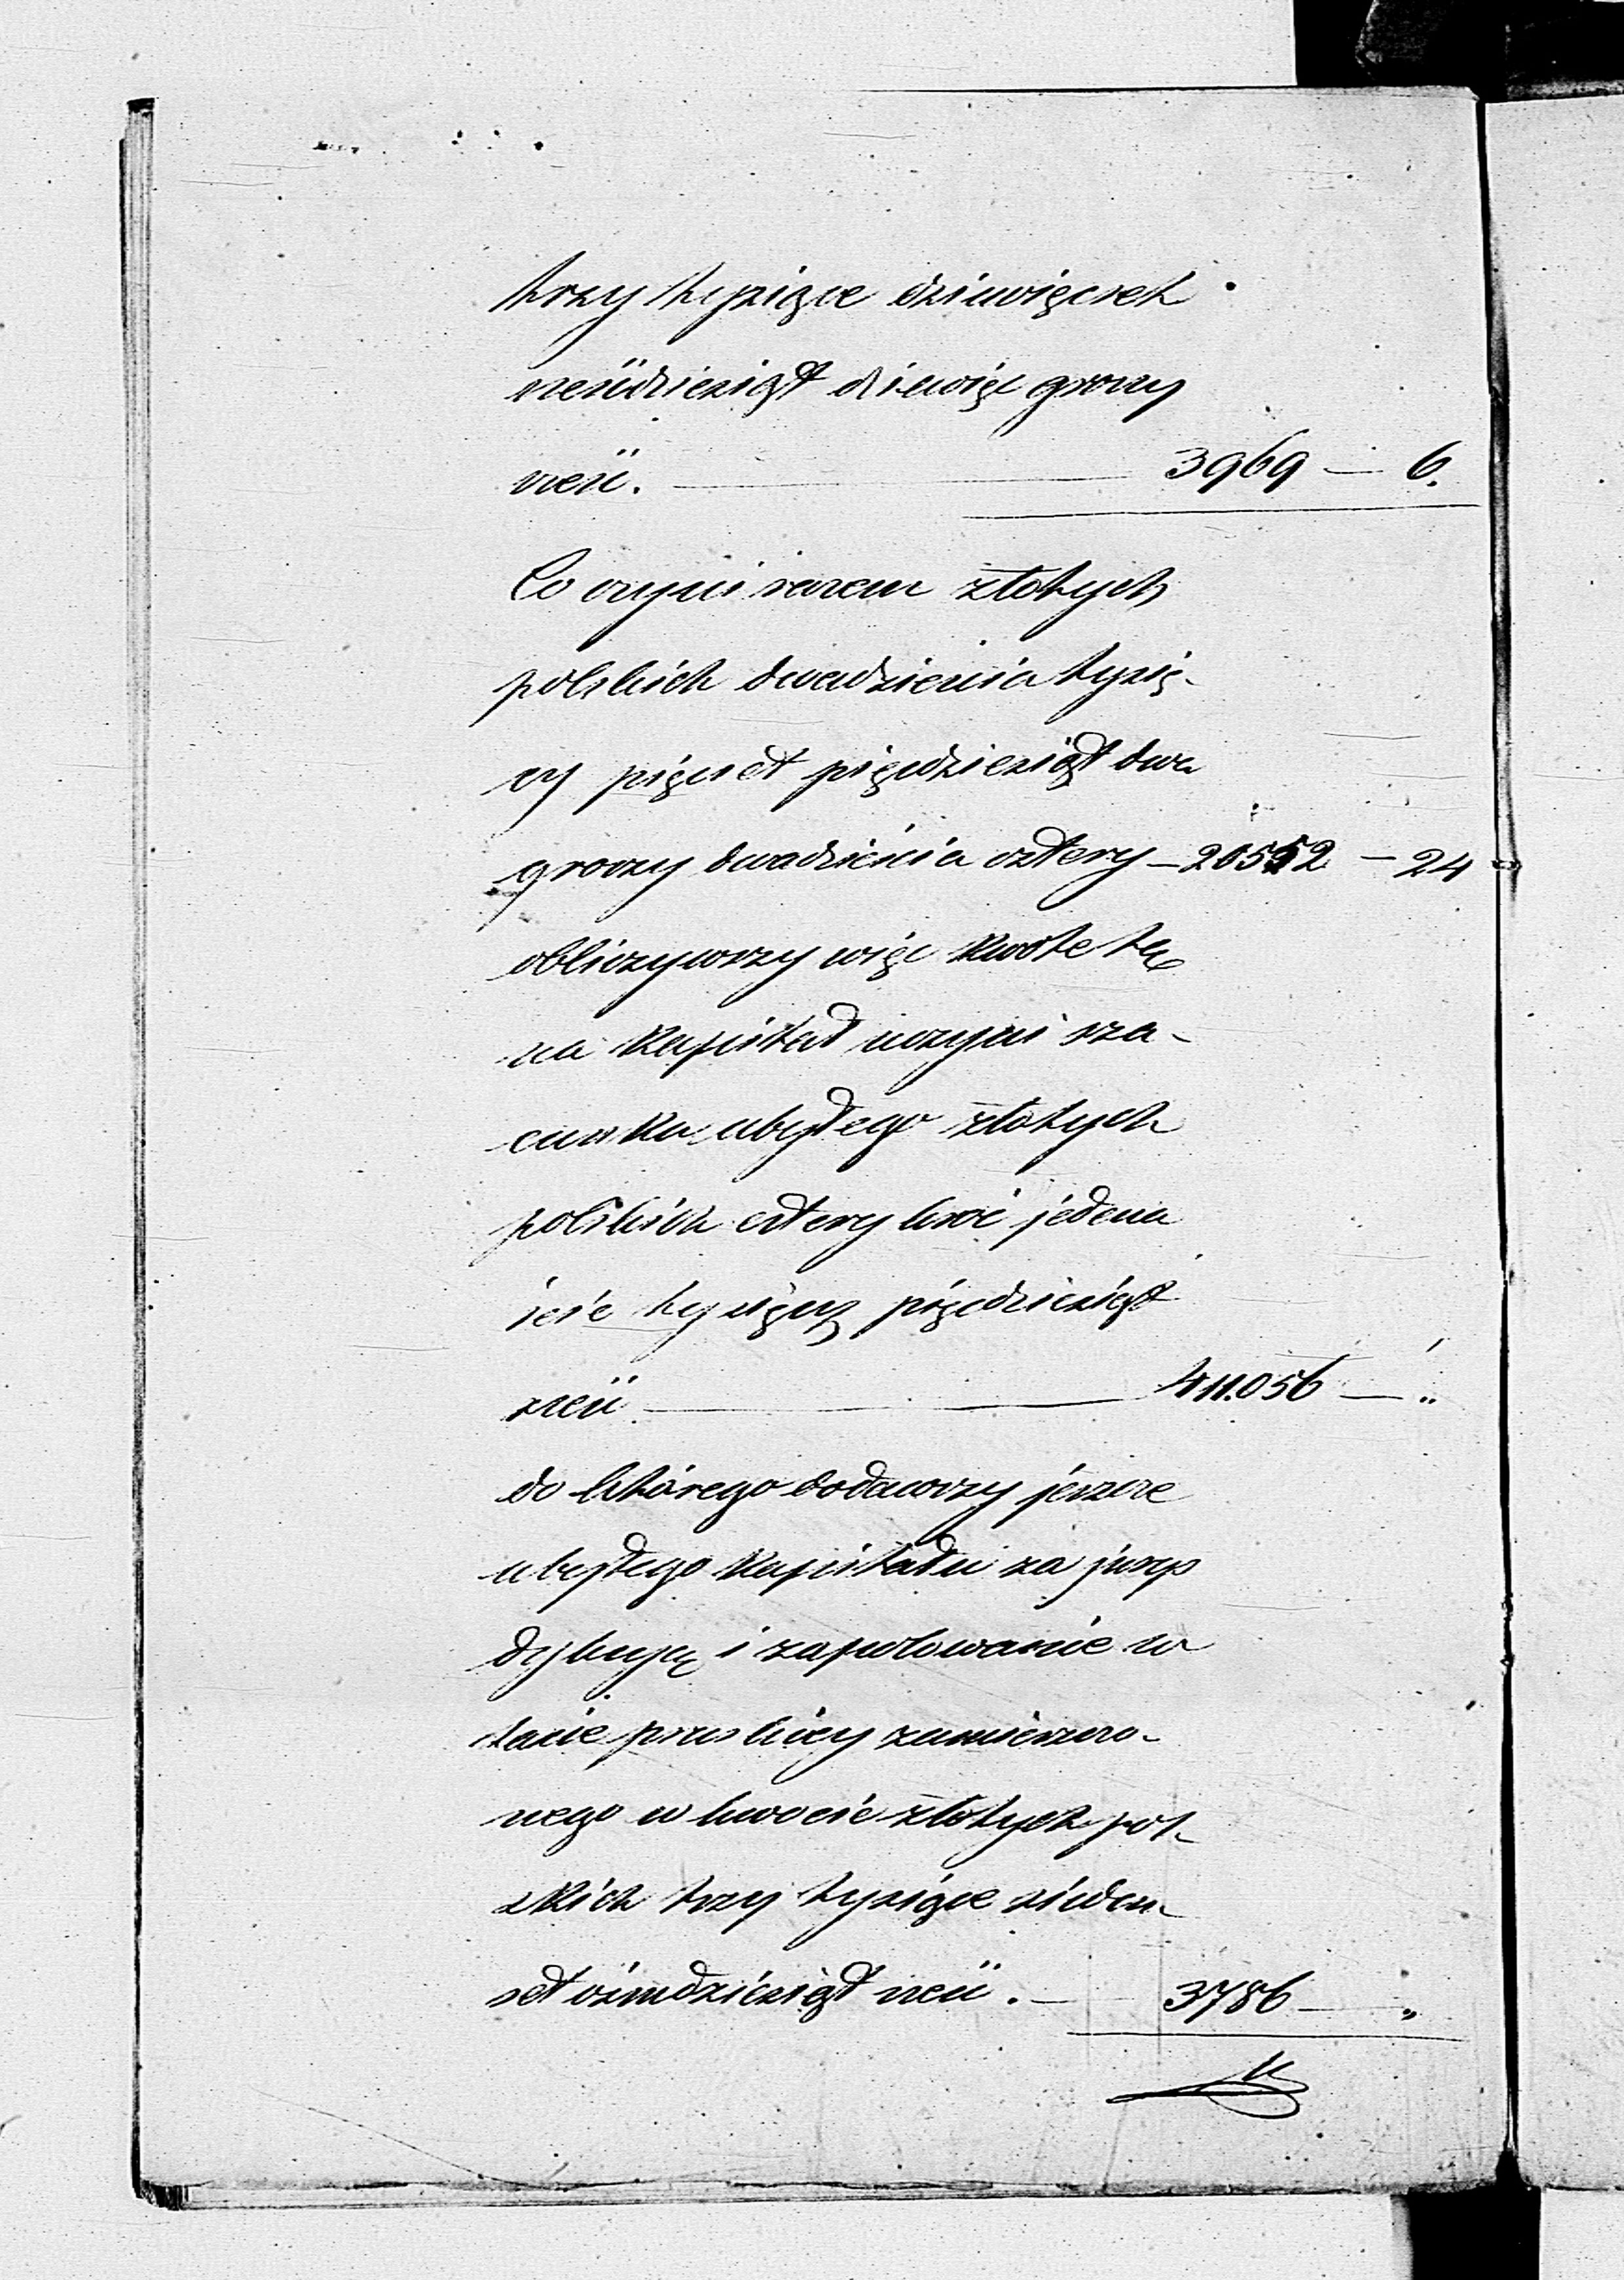 trzy tysiące dziewięcset
sześćdziesiąt dziewięć groszy
sześć. — 3969 — 6.
Co czyni razem złotych
polskich dwadzieścia tysię-
cy pięćset pięćdziesiąt dwa
groszy dwadzieścia cztery — 20552 — 24
obliczywszy więc kwotę tę
na kapitał uczyni sza-
cunku ubyłego złotych
polskich cztery kroć jedena
ście tysięcy pięćdziesiąt
sześć — 411.056 — „
do którego dodawszy jeszcze
ubyłego kapitału za jurys
dykcyę i zapolowanie w
takie pruskiey zamieszczo-
nego w kwocie złotych pol-
skich trzy tysiące siedem-
set ośmdziesiąt sześć. — 3786 — „